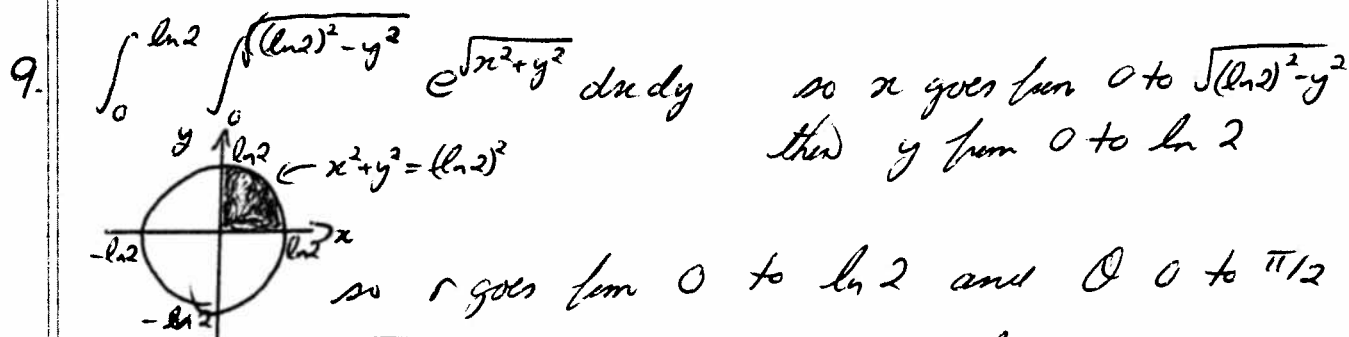 9. ∫₀^{ln2} ∫₀^{√((ln2)²-y²)} e^{√(x²+y²)} dx dy so x goes from 0 to √((ln2)²-y²)
then y from 0 to ln 2
y
ln2 ← x²+y² = (ln2)²
-ln2 ln2 x
so r goes from 0 to ln 2 and θ 0 to π/2
-ln2